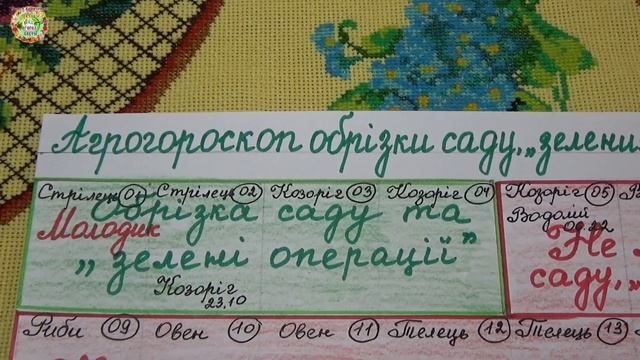 Агрогороскоп обрізки саду, „зелени
Стрілець 01 Стрілець 02 Козоріг 03 Козоріг 04
Обрізка саду та
Молодик
„зелені операції"
Козоріг
23,10
Козоріг 05
Водолій
09.42
Не
саду, „
Риби 09 Овен 10 Овен 11 Телець 12 Телець 13